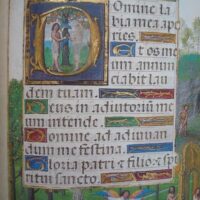 Domine la
bia mea ape
ries. Et os me
um annun
ciabit lau
dem tuam.
Deus in adiutorium me
um intende.
Domine ad adiuuan
dum me festina.
Gloria patri et filio et spi
ritui sancto.